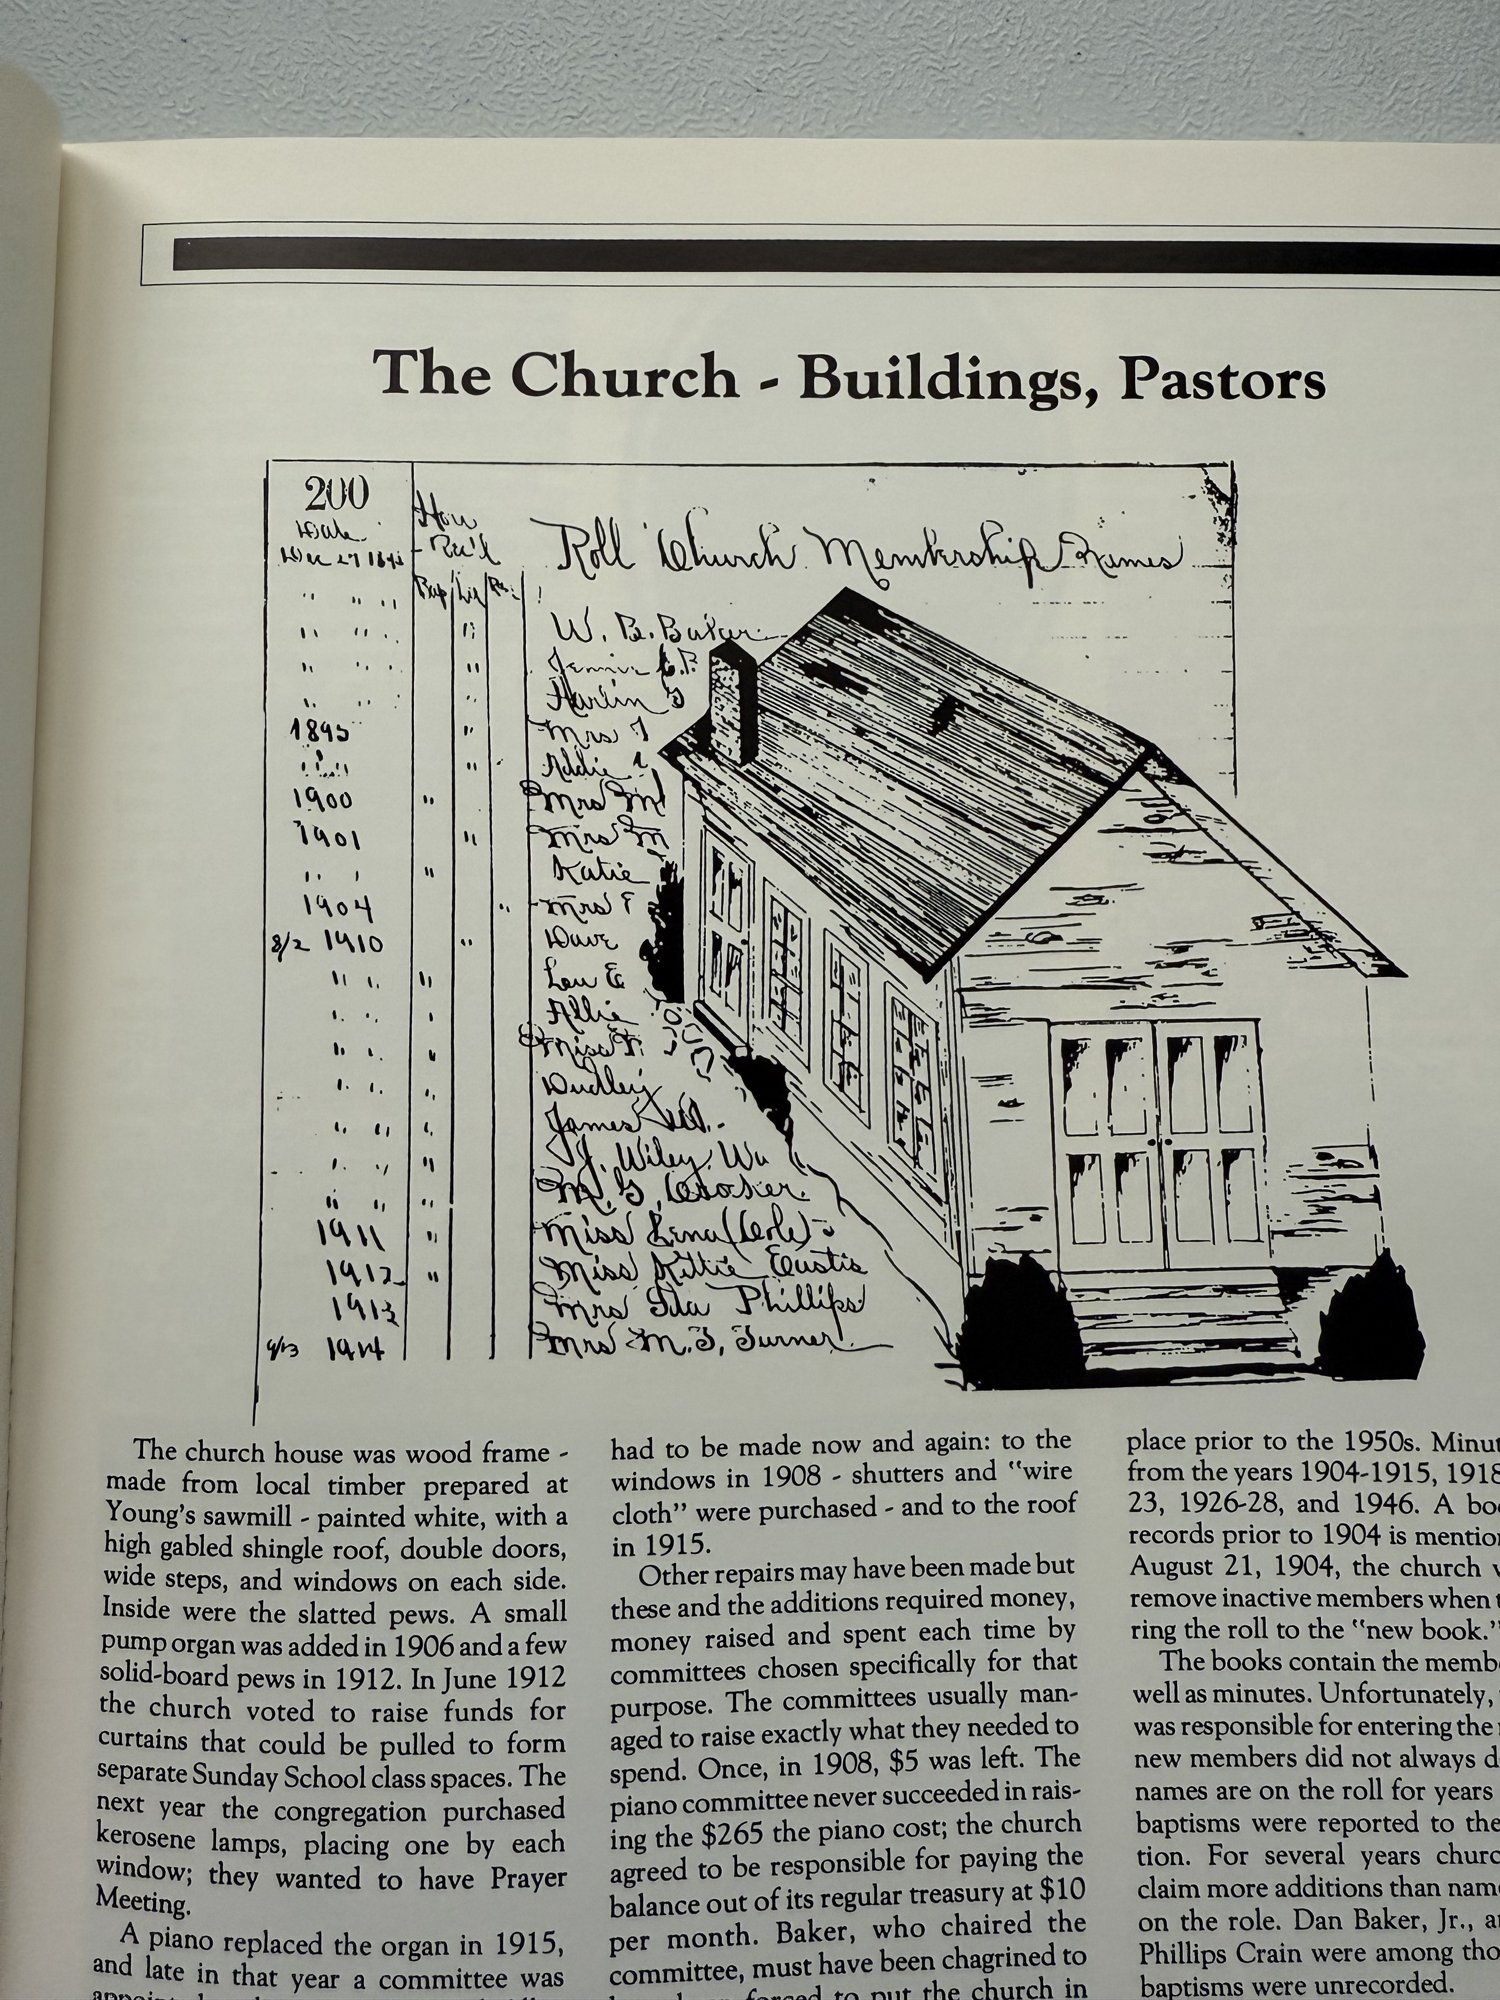 The Church - Buildings, Pastors
200
Date
How
Rec'd
Roll Church Membership Names
Dec 27 1895
Bap Let
W. B. Baker
Jennie
Harlin
1895
Mrs
Addie
1900
Mrs M
1901
Mrs M
Katie
1904
Mrs
8/2 1910
Dave
Lou E
Allie
Miss
Dudley
James W.
J. Wiley Wa
M. G. Crosier.
1911
Miss Lena
1912
Miss Kittie Eustis
1913
Mrs Ida Phillips
9/13 1914
Mrs M. T. Turner
The church house was wood frame -
made from local timber prepared at
Young's sawmill - painted white, with a
high gabled shingle roof, double doors,
wide steps, and windows on each side.
Inside were the slatted pews. A small
pump organ was added in 1906 and a few
solid-board pews in 1912. In June 1912
the church voted to raise funds for
curtains that could be pulled to form
separate Sunday School class spaces. The
next year the congregation purchased
kerosene lamps, placing one by each
window; they wanted to have Prayer
Meeting.
A piano replaced the organ in 1915,
and late in that year a committee was
had to be made now and again: to the
windows in 1908 - shutters and "wire
cloth" were purchased - and to the roof
in 1915.
Other repairs may have been made but
these and the additions required money,
money raised and spent each time by
committees chosen specifically for that
purpose. The committees usually man-
aged to raise exactly what they needed to
spend. Once, in 1908, $5 was left. The
piano committee never succeeded in rais-
ing the $265 the piano cost; the church
agreed to be responsible for paying the
balance out of its regular treasury at $10
per month. Baker, who chaired the
committee, must have been chagrined to
forced to put the church in
place prior to the 1950s. Minut
from the years 1904-1915, 1918
23, 1926-28, and 1946. A boo
records prior to 1904 is mention
August 21, 1904, the church v
remove inactive members when t
ring the roll to the "new book."
The books contain the membe
well as minutes. Unfortunately,
was responsible for entering the
new members did not always d
names are on the roll for years
baptisms were reported to the
tion. For several years churc
claim more additions than nam
on the role. Dan Baker, Jr., a
Phillips Crain were among tho
baptisms were unrecorded.